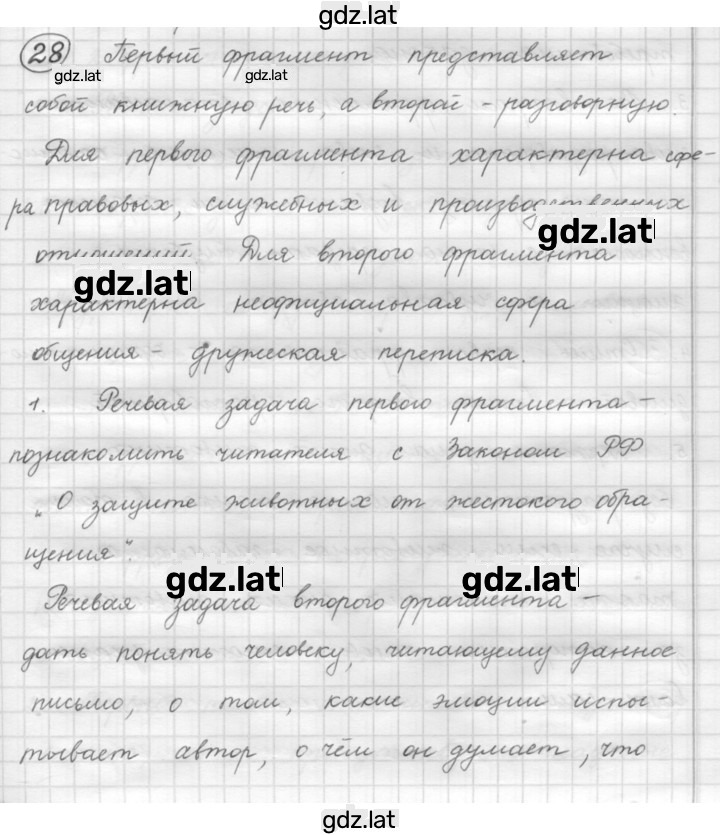 gdz.lat
28 Первый фрагмент представляет
gdz.lat gdz.lat
собой книжную речь, а второй - разговорную.
Для первого фрагмента характерна сфе-
ра правовых, служебных и производственных
gdz.lat
отношений. Для второго фрагмента
gdz.lat
характерна неофициальная сфера
общения - дружеская переписка.
1. Речевая задача первого фрагмента -
познакомить читателя с Законом РФ
„О защите животных от жестокого обра-
щения".
gdz.lat gdz.lat
Речевая задача второго фрагмента -
дать понять человеку, читающему данное
письмо, о том, какие эмоции испы-
тывает автор, о чём он думает, что
gdz.lat